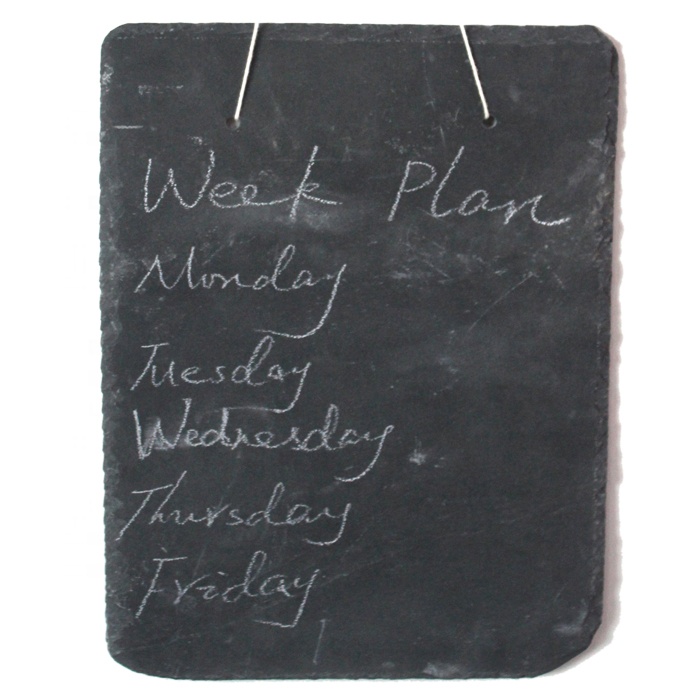 Week Plan
Monday
Tuesday
Wednesday
Thursday
Friday